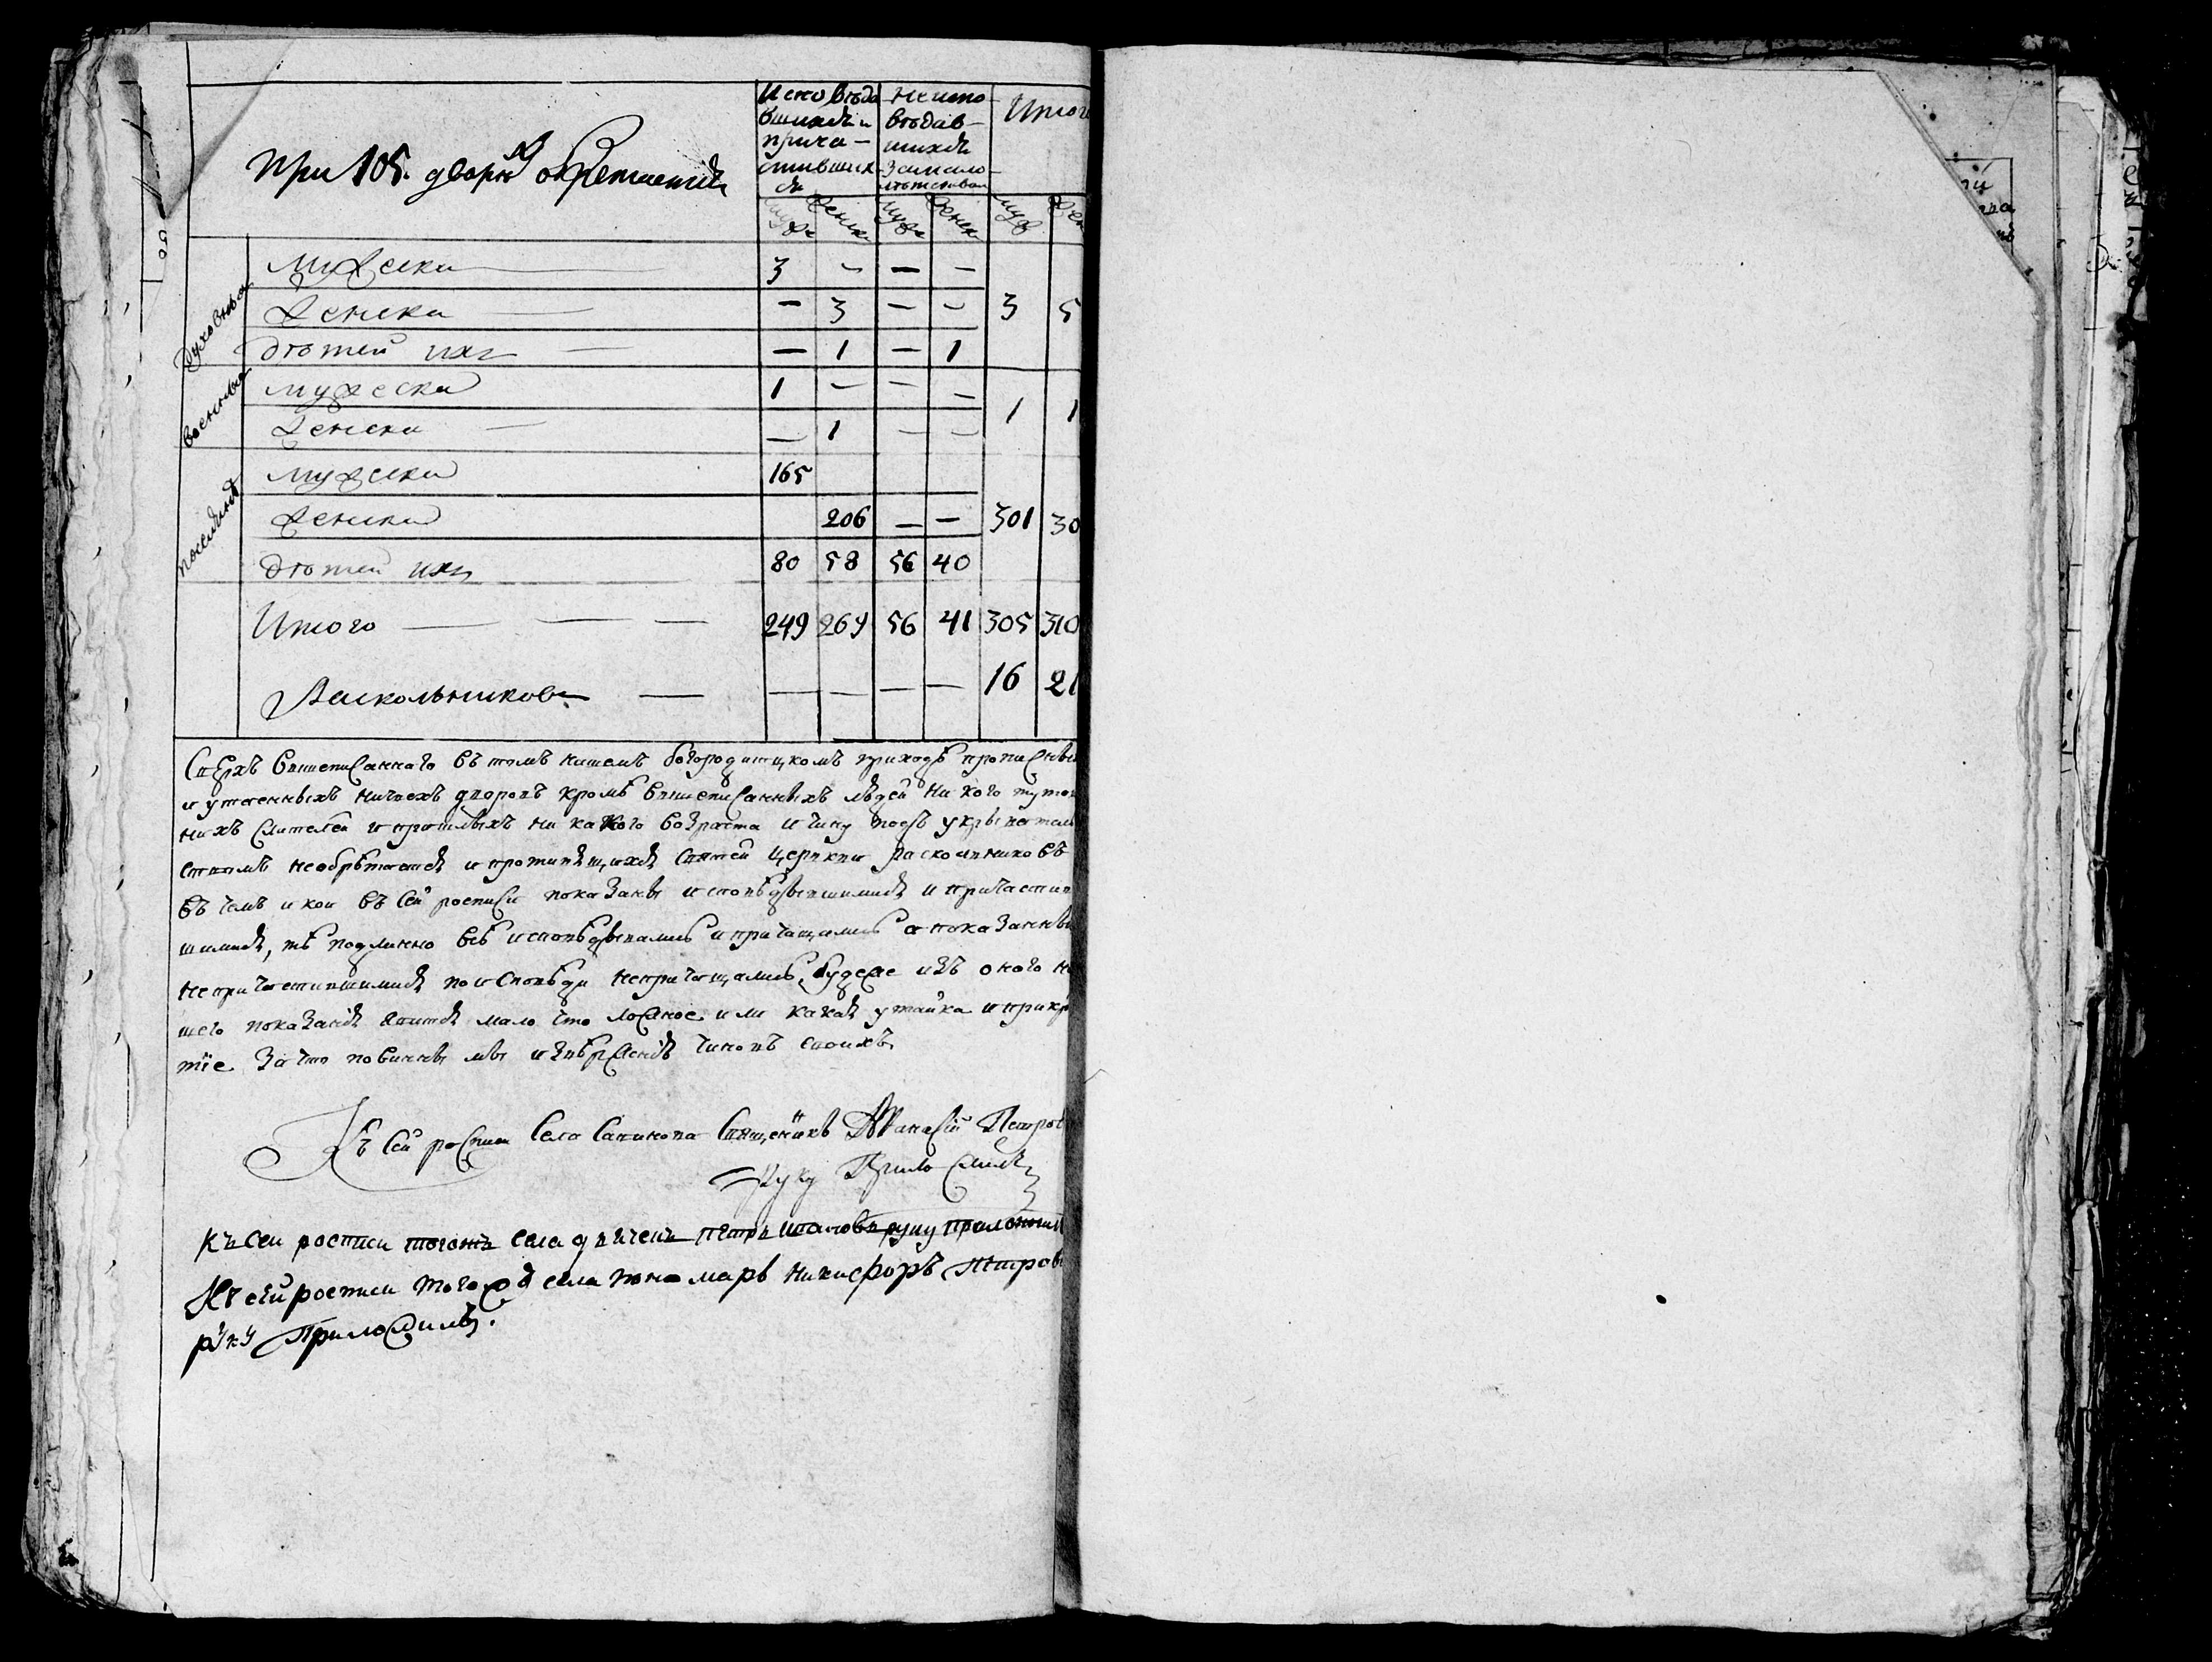 При 105. дворѣхъ обретаетца
Исповѣда
вшихся и
прича-
стивших
ся
Неиспо
вѣдав-
шихся
за мало-
лѣтством
Итого
муж женск муж женск муж жен
духовныя
мужеска 3 - - -
женска - 3 - - 3 5
дѣтей ихъ - 1 - 1
военныя
мужеска 1 - - - 1 1
женска - 1 - -
поселянъ
мужеска 165
женска 206 - - 301 30
дѣтей ихъ 80 58 56 40
Итого 249 269 56 41 305 310
Раскольниковъ - - - - 16 21
Сверхъ вышеписаннаго въ томъ нашемъ богородицкомъ приходѣ прописны
и утаенныхъ ничьехъ дворовъ кромѣ вышеписанныхъ людей никого туто
нихъ жителей и пришлыхъ ни какого возраста и чину
необрѣтается и противящихся святей церкви раскольниковъ
въ чемъ и кои въ сей росписи показаны исповѣдывшимися и причастив
шимися, тѣ подлинно всѣ исповѣдывались и причащались а показанны
непричастившимися по исповѣди непричащались, будеже изъ оного на
шего показанія явится мало что ложное или какая утайка и прикры
тїе за что повинны мы изверженія чиновъ своихъ
Къ сей росписи села Савинова священникъ Афанасїй Петровъ
руку приложилъ
Къ сеи росписи тогожъ села дьячекъ петръ ивановъ руку приложилъ
Къ сей росписи тогожъ села пономарь никифоръ петровъ
руку приложилъ.